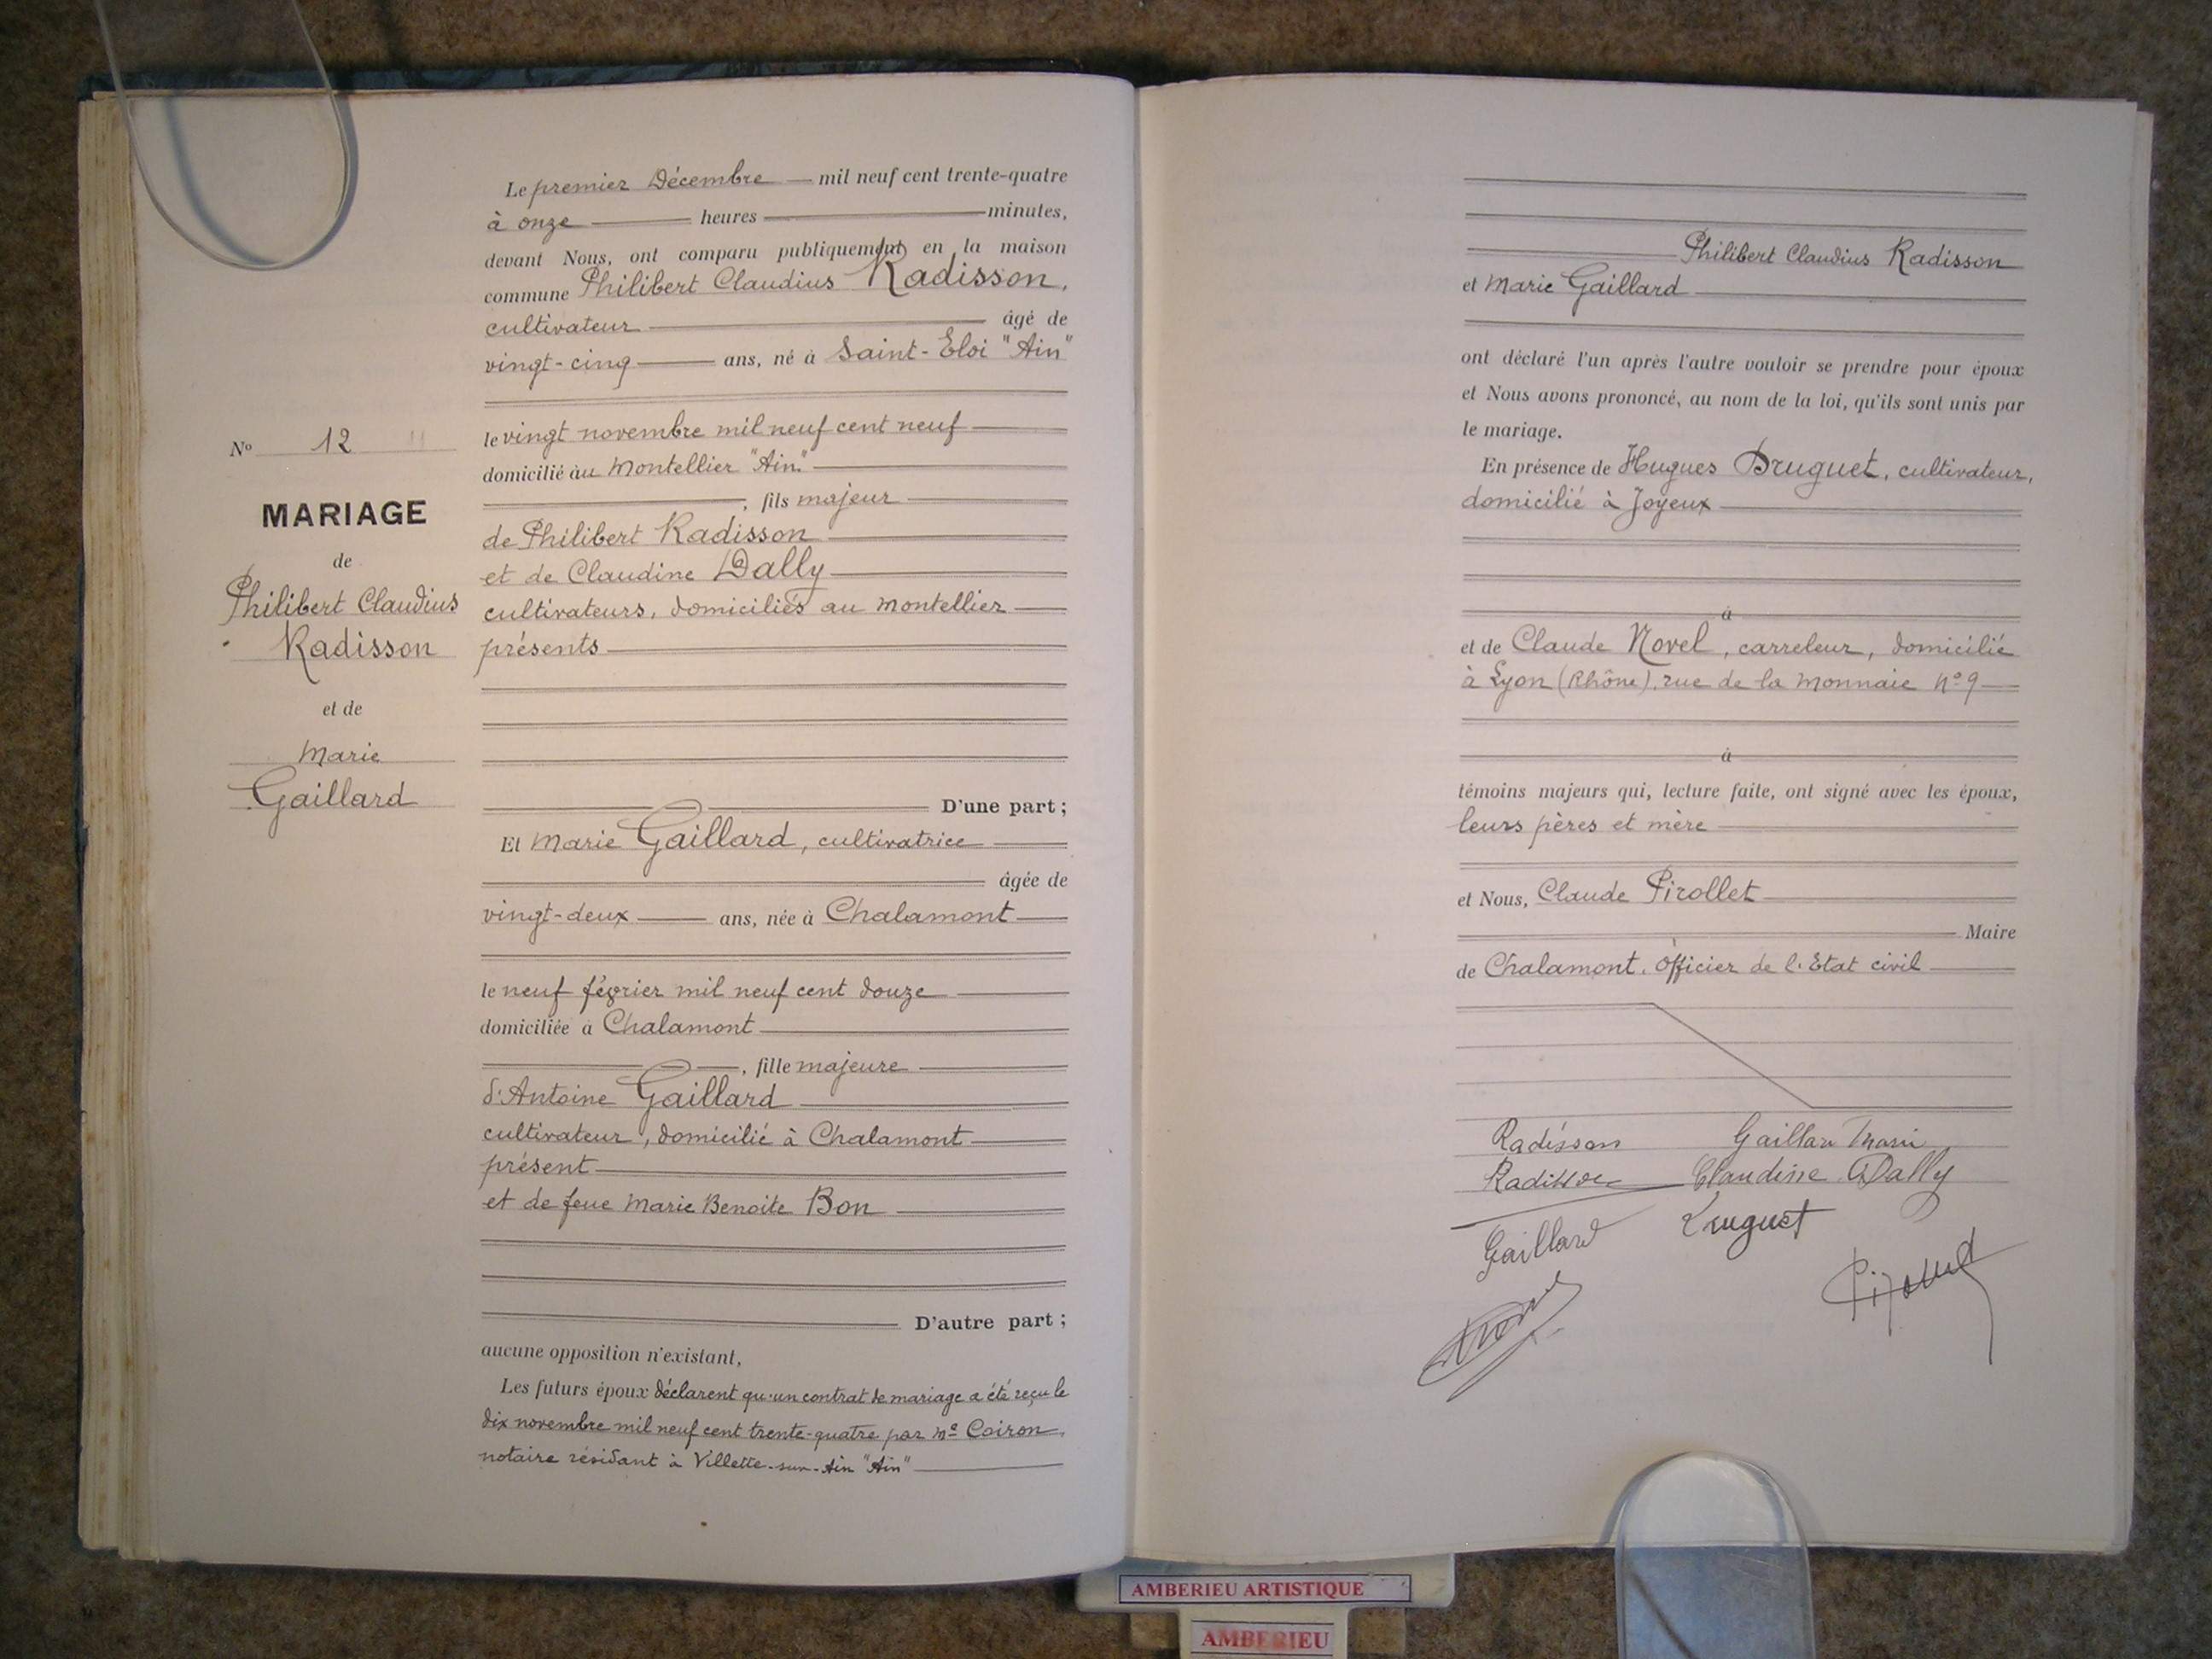 Le premier Décembre mil neuf cent trente-quatre
à onze heures minutes,
devant Nous, ont comparu publiquement en la maison
commune Philibert Claudius Radisson,
cultivateur âgé de
vingt-cinq ans, né à Saint-Eloi "Ain"
le vingt novembre mil neuf cent neuf
domicilié au Montellier "Ain"
, fils majeur
de Philibert Radisson
et de Claudine Dally
cultivateurs, domiciliés au Montellier
présents
D'une part ;
Et Marie Gaillard, cultivatrice
âgée de
vingt-deux ans, née à Chalamont
le neuf février mil neuf cent douze
domiciliée à Chalamont
, fille majeure
d'Antoine Gaillard
cultivateur, domicilié à Chalamont
présent
et de feue Marie Benoite Bon
D'autre part ;
aucune opposition n'existant,
Les futurs époux déclarent qu'un contrat de mariage a été reçu le
dix novembre mil neuf cent trente-quatre par Me Coiron,
notaire résidant à Villette-sur-Ain "Ain"
No 12
MARIAGE
de
Philibert Claudius
Radisson
et de
Marie
Gaillard
Philibert Claudius Radisson
et Marie Gaillard
ont déclaré l'un après l'autre vouloir se prendre pour époux
et Nous avons prononcé, au nom de la loi, qu'ils sont unis par
le mariage.
En présence de Hugues Druguet, cultivateur,
domicilié à Joyeux
à
et de Claude Novel, carreleur, domicilié
à Lyon (Rhône), rue de la Monnaie No 9
à
témoins majeurs qui, lecture faite, ont signé avec les époux,
leurs pères et mère
et Nous, Claude Pirollet
Maire
de Chalamont, Officier de l'Etat civil
Radisson Gaillard Marie
Radisson Claudine Dally
Gaillard Druguet
Pirollet
AMBERIEU ARTISTIQUE
AMBERIEU